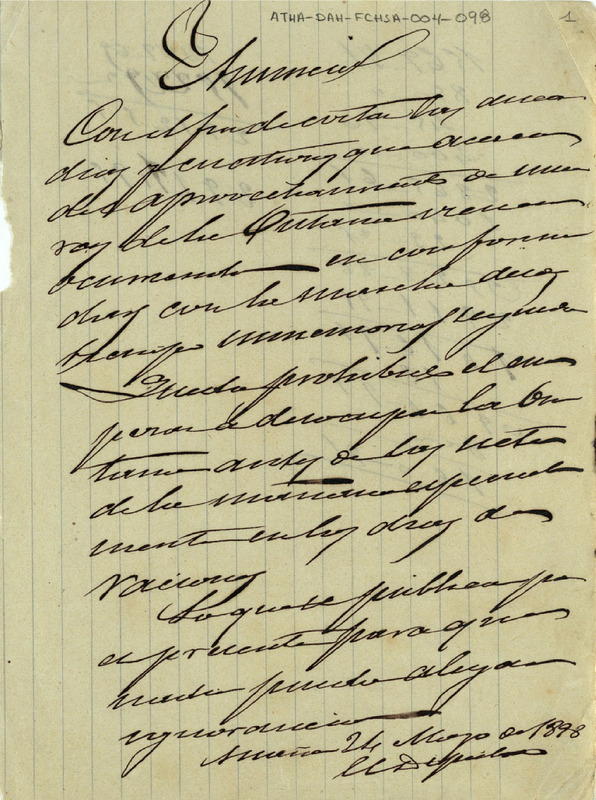 ATHA-DAH-FCHSA-004-098
1
Anuncio
Con el fin de cortar los desor
dias y cuestiones que acerca
del aprovechamiento de mue
ras de la Ontana vienen
ocurriendo en conformi
dad con la marcha de
tiempo inmemorial seguida
Queda prohibido el em
pezar a desocupar la On
tana antes de las siete
de la mañana especial
mente en los dias de
raciones
Lo que se publica por
el presente para que
nadie pueda alegar
ignorancia
Añana 24 Mayo de 1898
El Diputado